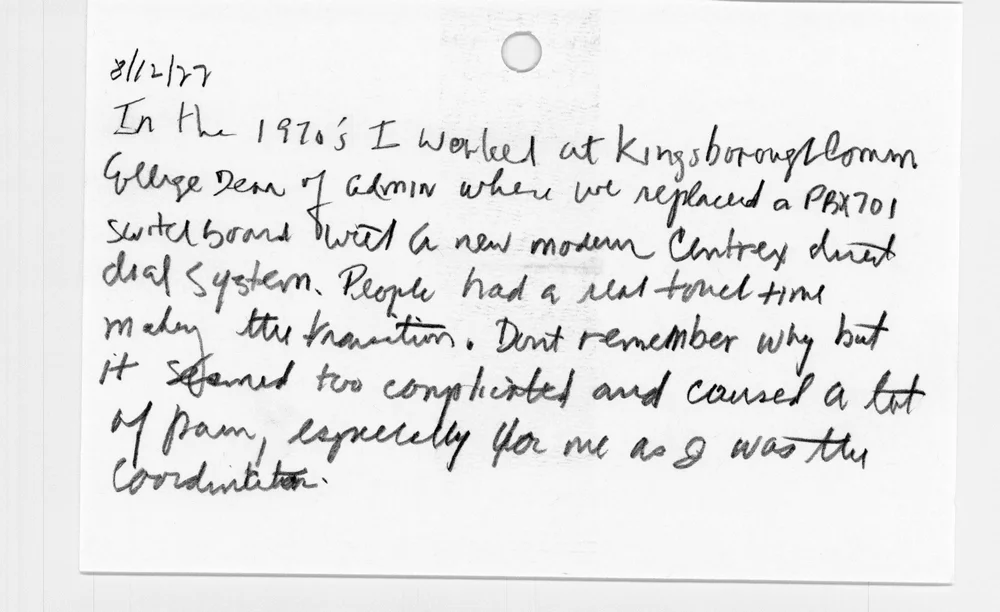 8/12/22
In the 1970's I worked at Kingsborough Comm.
College Dean of admin where we replaced a PBX701
switchboard with a new modern Centrex direct
dial system. People had a real tough time
making the transition. Dont remember why but
it seemed too complicated and caused a lot
of pain, especially for me as I was the
coordinator.